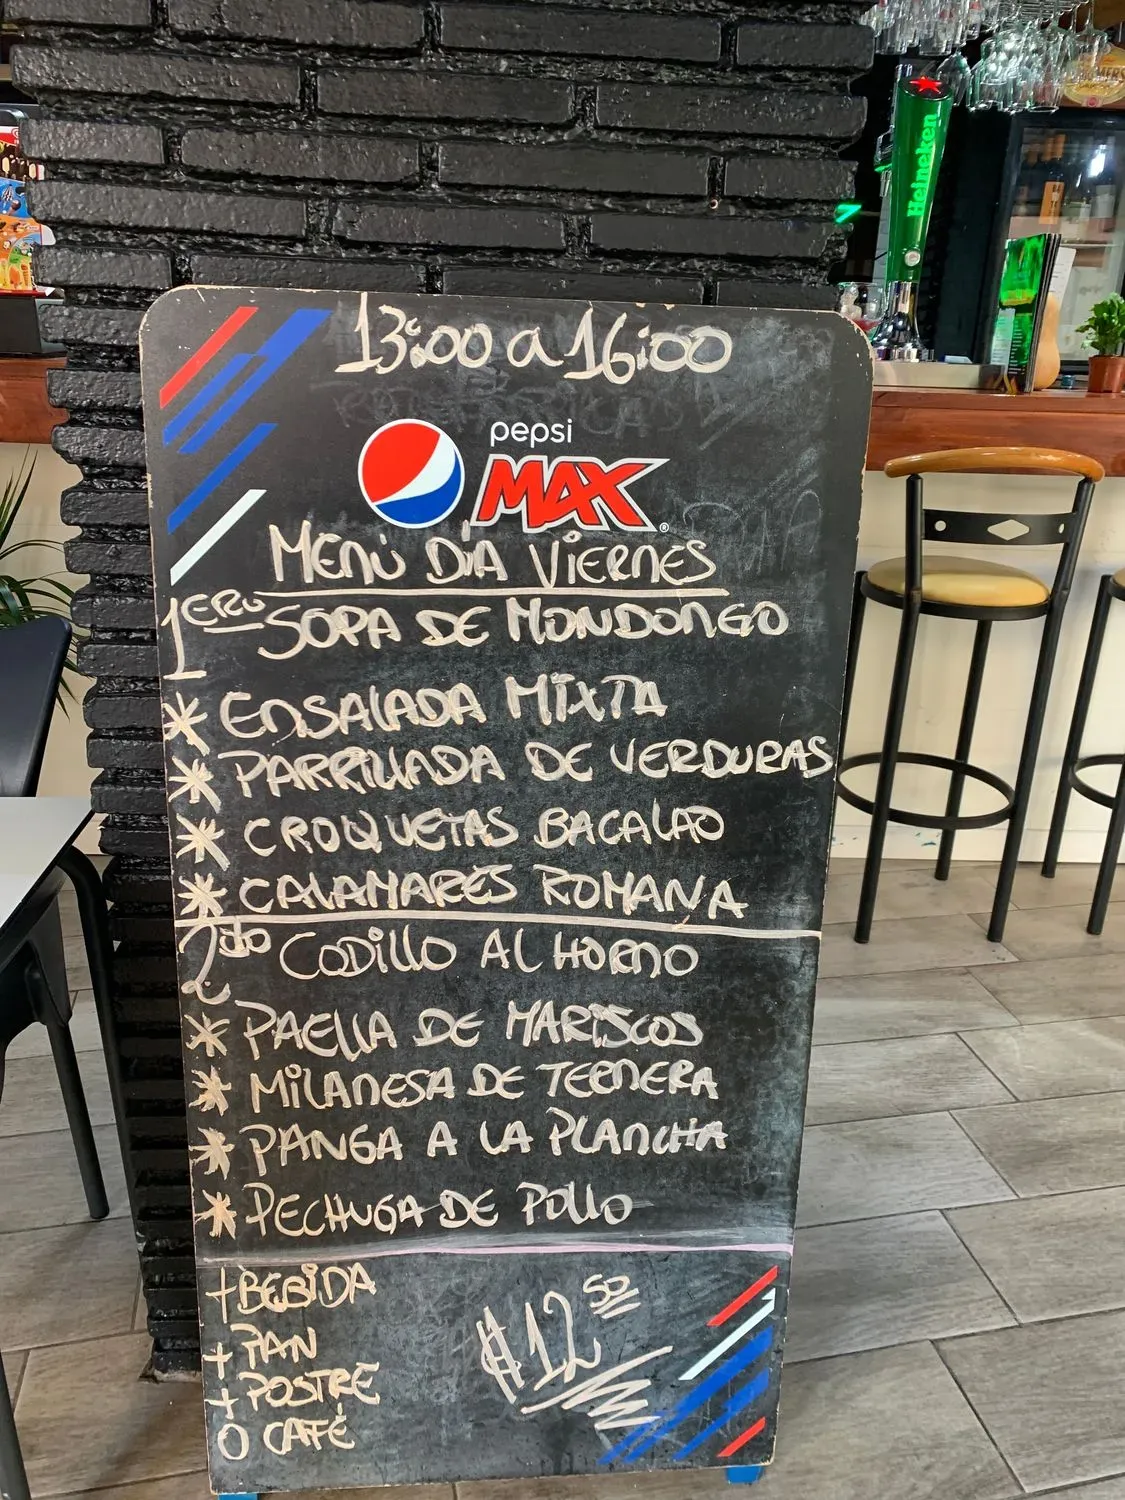 Heineken
13:00 a 16:00
pepsi
MAX®
MENÚ DÍA VIERNES
1ERO SOPA DE MONDONGO
* ENSALADA MIXTA
* PARRILLADA DE VERDURAS
* CROQUETAS BACALAO
* CALAMARES ROMANA
2do CODILLO AL HORNO
* PAELLA DE MARISCOS
* MILANESA DE TERNERA
* PANGA A LA PLANCHA
* PECHUGA DE POLLO
+ BEBIDA
+ PAN
+ POSTRE
O CAFÉ
12 50